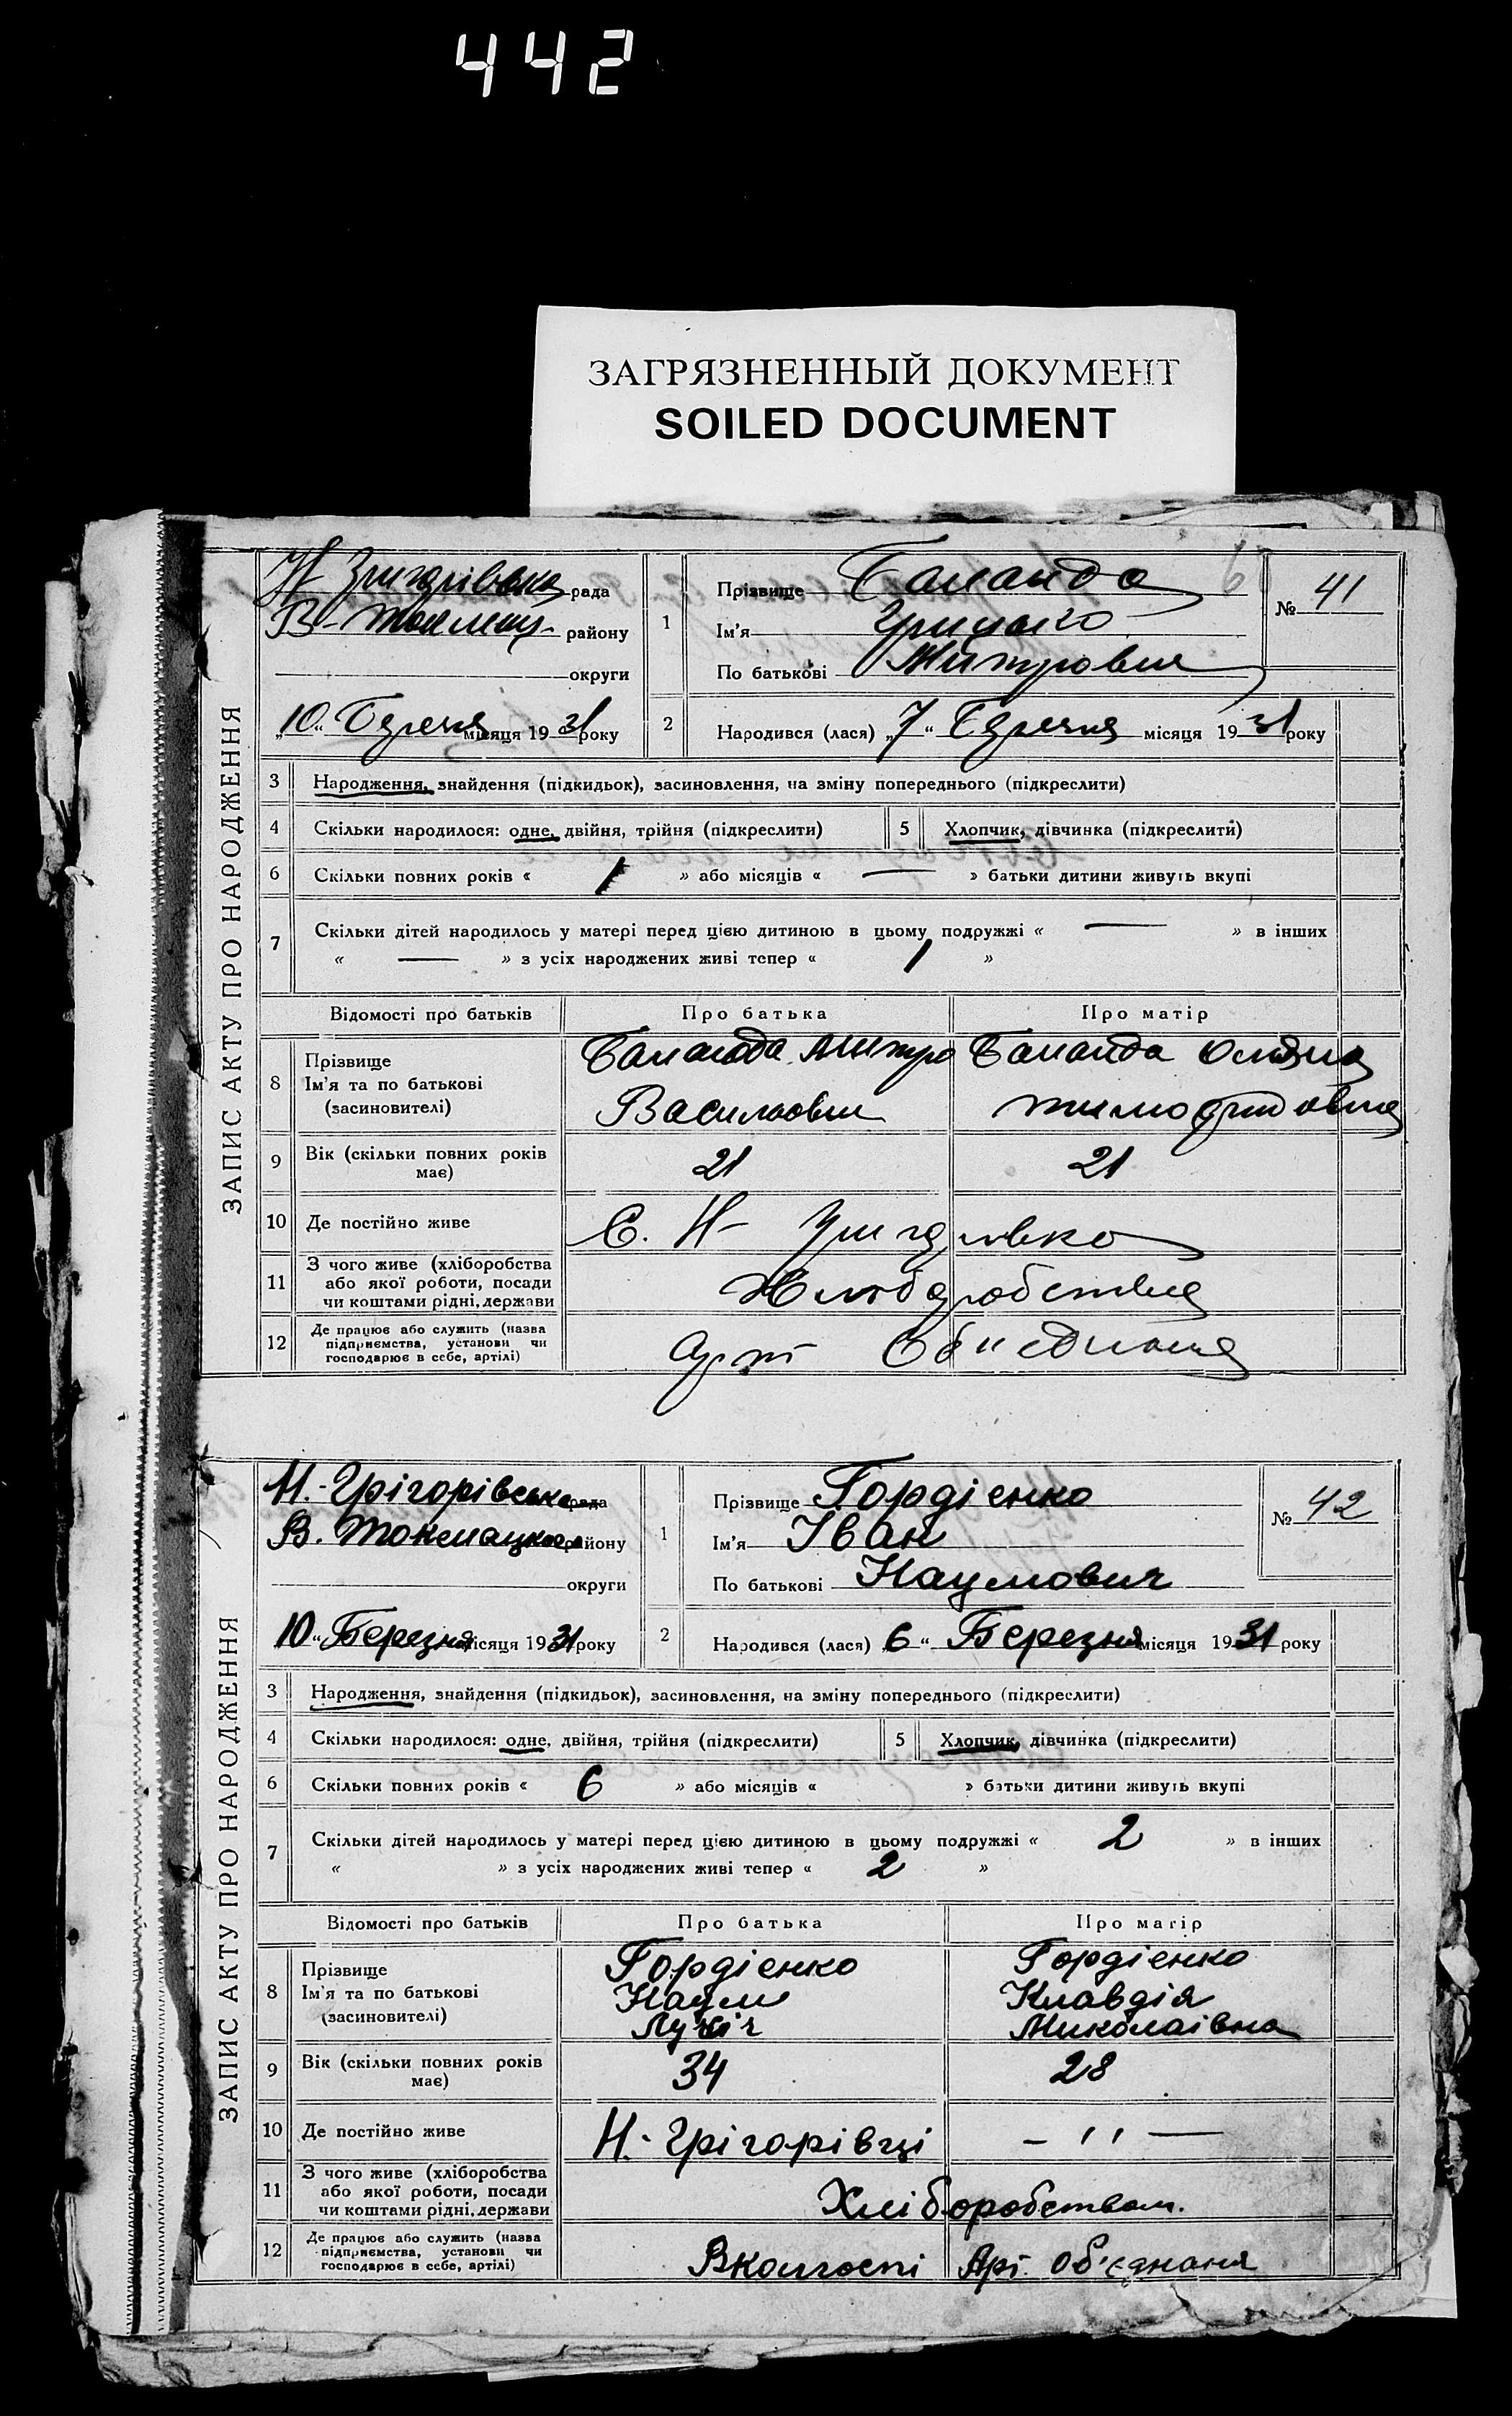 442
ЗАГРЯЗНЕННЫЙ ДОКУМЕНТ
SOILED DOCUMENT
ЗАПИС АКТУ ПРО НАРОДЖЕННЯ
рада
В- району
округи
„10“ місяця 1931 року
1
Прізвище Баланда
Ім'я Грицько
По батькові Митрович
№ 41
2 Народився (лася) „7“ місяця 1931 року
3 Народження, знайдення (підкидьок), засиновлення, на зміну попереднього (підкреслити)
4 Скільки народилося: одне, двійня, трійня (підкреслити) 5 Хлопчик, дівчинка (підкреслити)
6 Скільки повних років « 1 » або місяців « — » батьки дитини живуть вкупі
7 Скільки дітей народилось у матері перед цією дитиною в цьому подружжі « — » в інших
« — » з усіх народжених живі тепер « 1 »
Відомості про батьків Про батька Про матір
8 Прізвище
Ім'я та по батькові
(засиновителі)
Баланда Митро
Васильович
Баланда Оляна
9 Вік (скільки повних років
має) 21 21
10 Де постійно живе С. Н-
11 З чого живе (хліборобства
або якої роботи, посади
чи коштами рідні, держави
12 Де працює або служить (назва
підприємства, установи чи
господарює в себе, артілі)
Арт
ЗАПИС АКТУ ПРО НАРОДЖЕННЯ
Н.-Грігорівська рада
В. Токмацького району
округи
10 „Березня місяця 1931 року
1
Прізвище Гордієнко
Ім'я Іван
По батькові Наумович
№ 42
2 Народився (лася) „6“ Березня місяця 1931 року
3 Народження, знайдення (підкидьок), засиновлення, на зміну попереднього (підкреслити)
4 Скільки народилося: одне, двійня, трійня (підкреслити) 5 Хлопчик, дівчинка (підкреслити)
6 Скільки повних років « 6 » або місяців « » батьки дитини живуть вкупі
7 Скільки дітей народилось у матері перед цією дитиною в цьому подружжі « 2 » в інших
« » з усіх народжених живі тепер « 2 »
Відомості про батьків Про батька Про матір
8 Прізвище
Ім'я та по батькові
(засиновителі)
Гордієнко
Наум
Гордієнко
Клавдія
Миколаівна
9 Вік (скільки повних років
має) 34 28
10 Де постійно живе Н.-Грігорівці – ′′ —
11 З чого живе (хліборобства
або якої роботи, посади
чи коштами рідні, держави
Хліборобством.
12 Де працює або служить (назва
підприємства, установи чи
господарює в себе, артілі)
Вколгоспі Арт. Об'єднаня